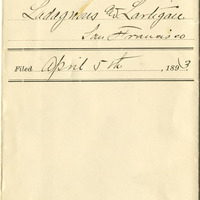 Ladagnous & Lartigau
San Francisco
Filed April 5th, 1893